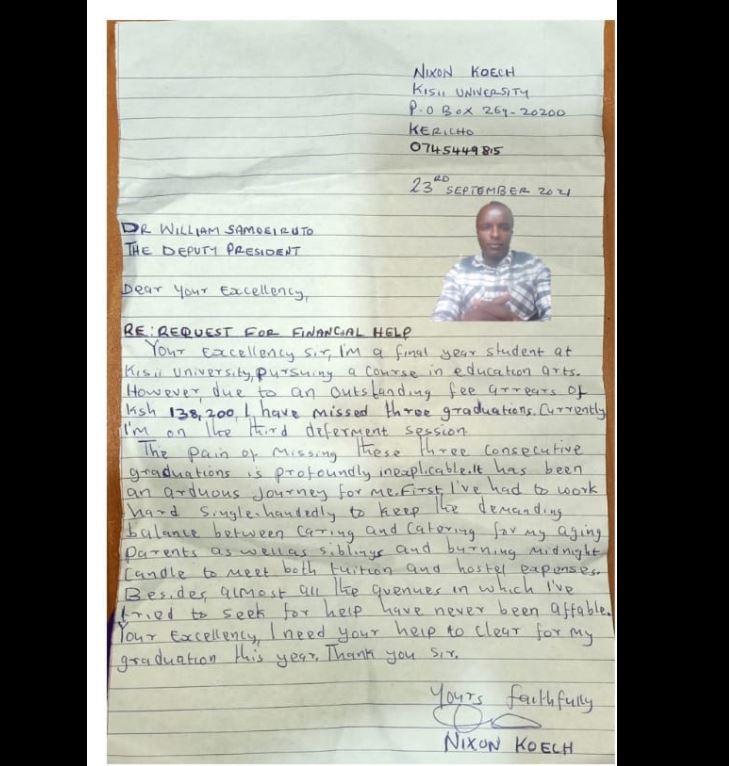 NIXON KOECH
KISII UNIVERSITY
P.O BOX 269-20200
KERICHO
0745449815
23RD SEPTEMBER 2021
DR WILLIAM SAMOEI RUTO
THE DEPUTY PRESIDENT
Dear Your Excellency,
RE: REQUEST FOR FINANCIAL HELP
Your Excellency Sir, I'm a final year student at
Kisii University, pursuing a course in education arts.
However, due to an outstanding fee arrears of
Ksh 138,200, I have missed three graduations. Currently
I'm on the third deferment session.
The pain of missing these three consecutive
graduations is profoundly inexplicable. It has been
an arduous journey for me. First, I've had to work
hard single-handedly to keep the demanding
balance between caring and catering for my aging
parents as well as siblings and burning midnight
candle to meet both tuition and hostel expenses.
Besides, almost all the avenues in which I've
tried to seek for help have never been affable.
Your Excellency, I need your help to clear for my
graduation this year. Thank you Sir.
Yours faithfully
NIXON KOECH